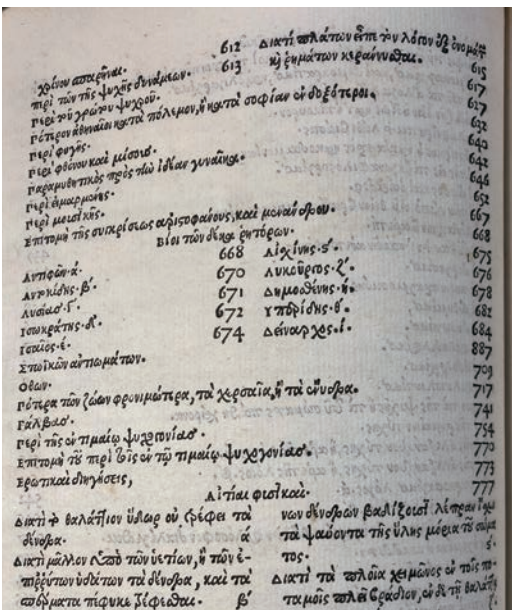 χρόνου σπαρῆναι. 612 Διατί πλάτων εἶπε τὸν λόγον ἐξ ὀνομάτων
613 καὶ ῥημάτων κεράννυσθαι.
Περὶ τῶν τῆς ψυχῆς δυνάμεων. 615
Περὶ τοῦ πρώτου ψυχροῦ. 617
Πότερον ἀθηναῖοι κατὰ πόλεμον, ἢ κατὰ σοφίαν ἐνδοξότεροι. 627
Περὶ φυγῆς. 632
Περὶ φθόνου καὶ μίσους. 640
Παραμυθητικὸς πρὸς τὴν ἰδίαν γυναῖκα. 642
Περὶ εἱμαρμένης. 646
Περὶ μουσικῆς. 652
Ἐπιτομὴ τῆς συγκρίσεως ἀριστοφάνους, καὶ μενάνδρου. 667
Βίοι τῶν δέκα ῥητόρων. 668
Ἀντιφῶν. α. 668 Αἰσχίνης. ϛ. 675
Ἀνδοκίδης. β. 670 Λυκοῦργος. ζ. 676
Λυσίας. γ. 671 Δημοσθένης. η. 678
Ἰσωκράτης. δ. 672 Ὑπερίδης. θ. 682
Ἰσαῖος. ε. 674 Δείναρχος. ι. 684
Στωϊκῶν ἀντιωμάτων. 887
Ὄθων. 709
Πότερα τῶν ζώων φρονιμώτερα, τὰ χερσαῖα, ἢ τὰ ἔνυδρα. 717
Γάλβας. 741
Περὶ τῆς ἐν τιμαίῳ ψυχογονίας. 754
Ἐπιτομὴ τοῦ περὶ τῆς ἐν τῷ τιμαίῳ ψυχογονίας. 770
Ἐρωτικαὶ διηγήσεις, 773
Αἰτίαι φυσικαί. 777
Διατί τὸ θαλάττιον ὕδωρ οὐ τρέφει τὰ
δένδρα. α
Διατί μᾶλλον ἀπὸ τῶν ὑετίων, ἢ τῶν ἐ-
πιῤῥύτων ὑδάτων τὰ δένδρα, καὶ τὰ
σπέρματα πέφυκε τρέφεσθαι. β
νων δένδρων βαδίζουσι λέπραν ἴσχει
τὰ ψαύοντα τῆς ὕλης μόρια τοῦ σώμα
τος. ϛ
Διατί τὰ πλοῖα χειμῶνος ἐν τοῖς πο-
ταμοῖς πλεῖ βράδιον, ἐν δὲ τῇ θαλάττῃ